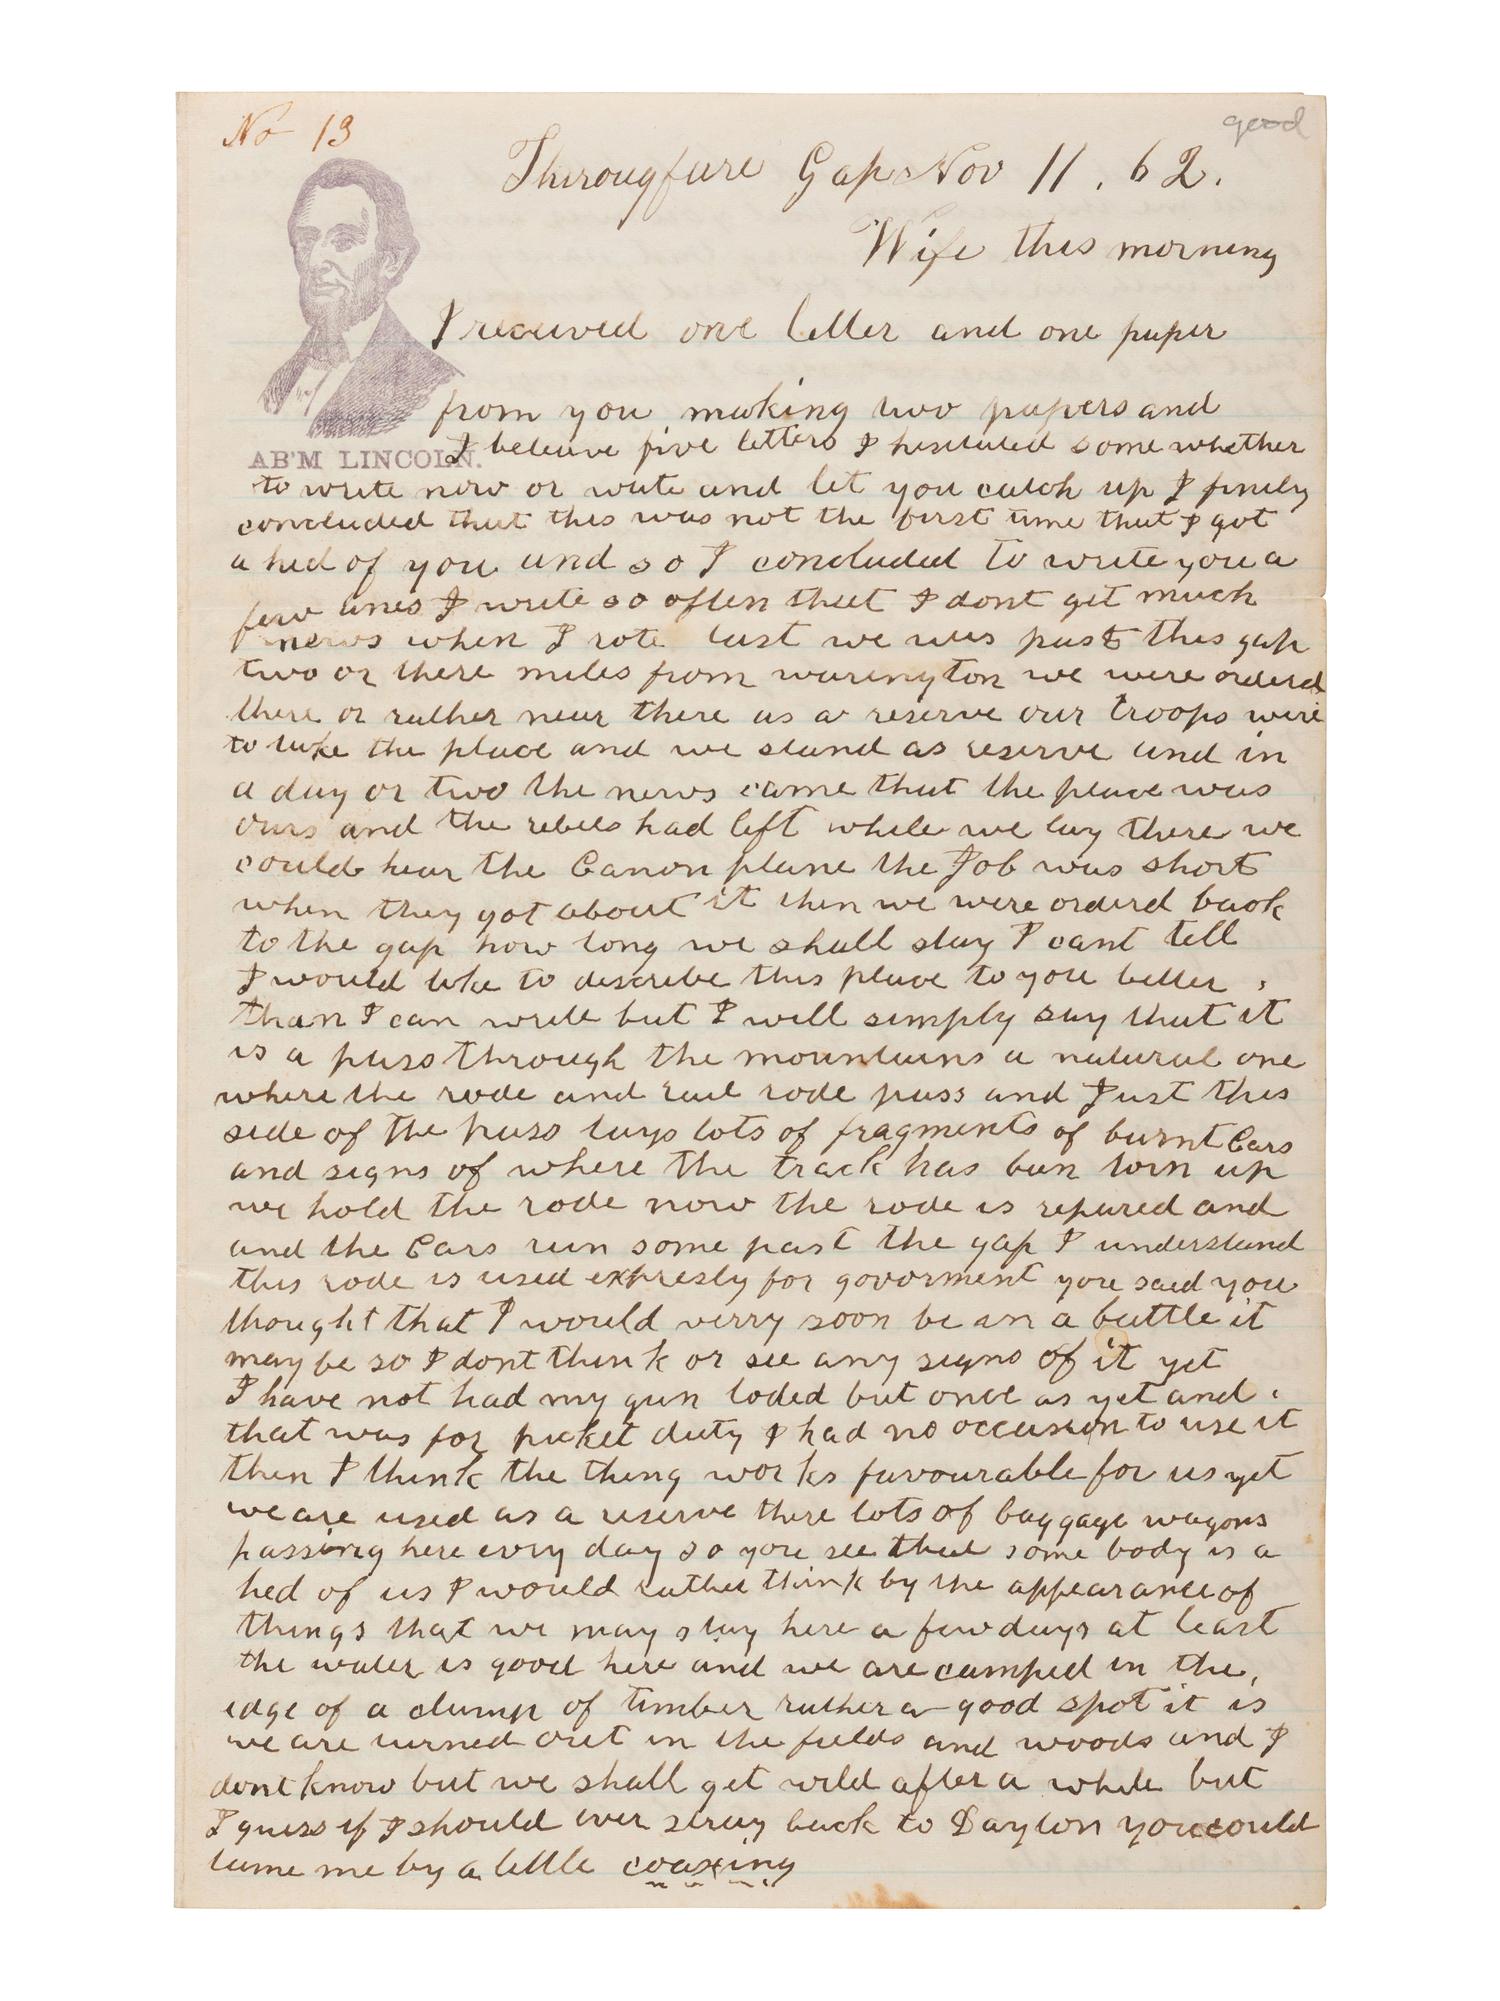 No 13
good
Thirougfare Gap Nov 11. 62.
Wife this morning
I received one letter and one paper
from you making two papers and
I beleive five letters I hesitated some whether
AB'M LINCOLN.
to write now or wate and let you catch up I finely
concluded that this was not the first time that I got
a hed of you and so I concluded to write you a
few lines I write so often that I dont get much
news when I rote last we was past this gap
two or there miles from warington we were orderd
there or rather near there as a reserve our troops were
to take the place and we stand as reserve and in
a day or two the news came that the place was
ours and the rebels had left while we lay there we
could hear the Canon plane the Job was short
when they got about it then we were orderd back
to the gap how long we shall stay I cant tell
I would like to describe this place to you better
than I can write but I will simply say that it
is a pass through the mountains a natural one
where the rode and rail rode pass and Just this
side of the pass lays lots of fragments of burnt Cars
and signs of where the track has bun torn up
we hold the rode now the rode is repared and
and the Cars run some past the gap I understand
this rode is used expresly for govorment you said you
thought that I would verry soon be in a battle it
may be so I dont think or see any signs of it yet
I have not had my gun loded but once as yet and
that was for picket duty I had no occasion to use it
then I think the thing works favourable for us yet
we are used as a reserve there lots of baggage wagons
passing here evry day so you see that some body is a
hed of us I would rather think by the appearance of
things that we may stay here a few days at least
the water is good here and we are camped in the
edge of a clump of timber rather a good spot it is
we are turned out in the fields and woods and I
dont know but we shall get wild after a while but
I guess if I should ever stray back to Dayton you could
tame me by a little coaxing